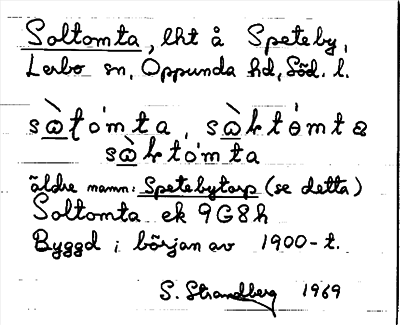 Soltomta, lht å Speteby,
Lerbo sn, Oppunda hd, Söd. l.
sὼɭtómta, sὼłtómta
sὼłtómta
äldre namn: Spetebytorp (se detta)
Soltomta ek 9G8h
Byggd i början av 1900-t.
S. Strandberg 1969